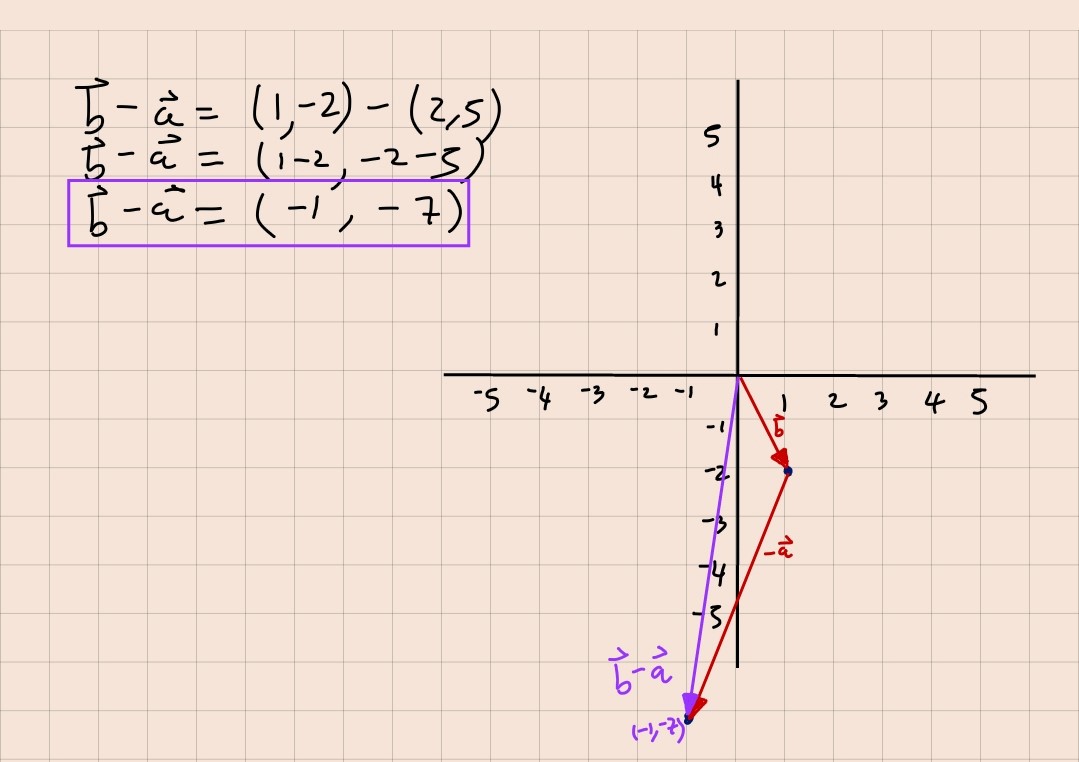 b⃗ - a⃗ = (1,-2) - (2,5)
b⃗ - a⃗ = (1-2, -2-5)
b⃗ - a⃗ = (-1, -7)
5
4
3
2
1
-5 -4 -3 -2 -1 1 2 3 4 5
-1
b⃗
-2
-3
-a⃗
-4
-5
b⃗ - a⃗
(-1,-7)